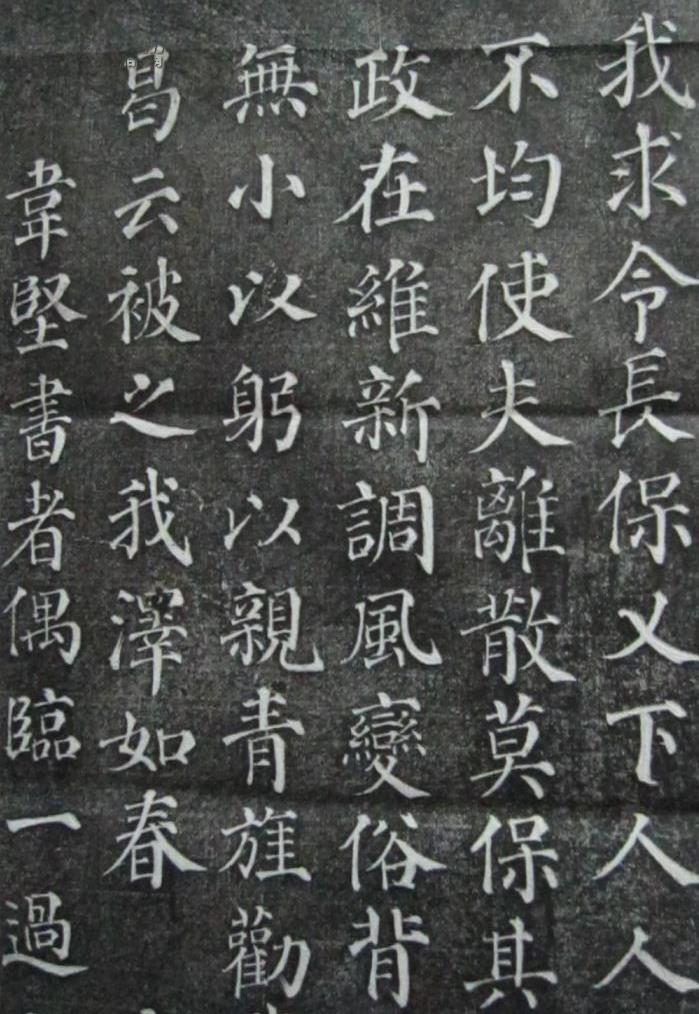 我求令長保乂下人人
不均使夫離散莫保其
政在維新調風變俗背
無小以躬以親青旌勸
曷云被之我澤如春
韋堅書者偶臨一過